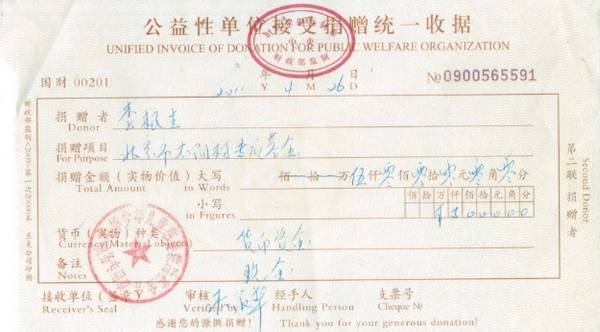 公益性单位接受捐赠统一收据
UNIFIED INVOICE OF DONATION FOR PUBLIC WELFARE ORGANIZATION
财政部监制
国财 00201
2011 年 4 月 26 日
Y M D
№0900565591
捐赠者
Donor
李根生
捐赠项目
For Purpose
北京市太阳村专项基金
捐赠金额(实物价值)大写 佰 十 万 伍 仟 零 佰 零 拾 零 元 零 角 零 分
Total Amount in Words
小写 佰 拾 万 千 百 十 元 角 分
in Figures
货币(实物)种类
Currency(Material objects)
货币资金
备注
Notes
现金
接收单位(签章) 审核 经手人 支票号
Receiver's Seal Verified by Handling Person Cheque №
感谢您的慷慨捐赠! Thank you for your generous donation!
第二联 捐赠者
Second Donor